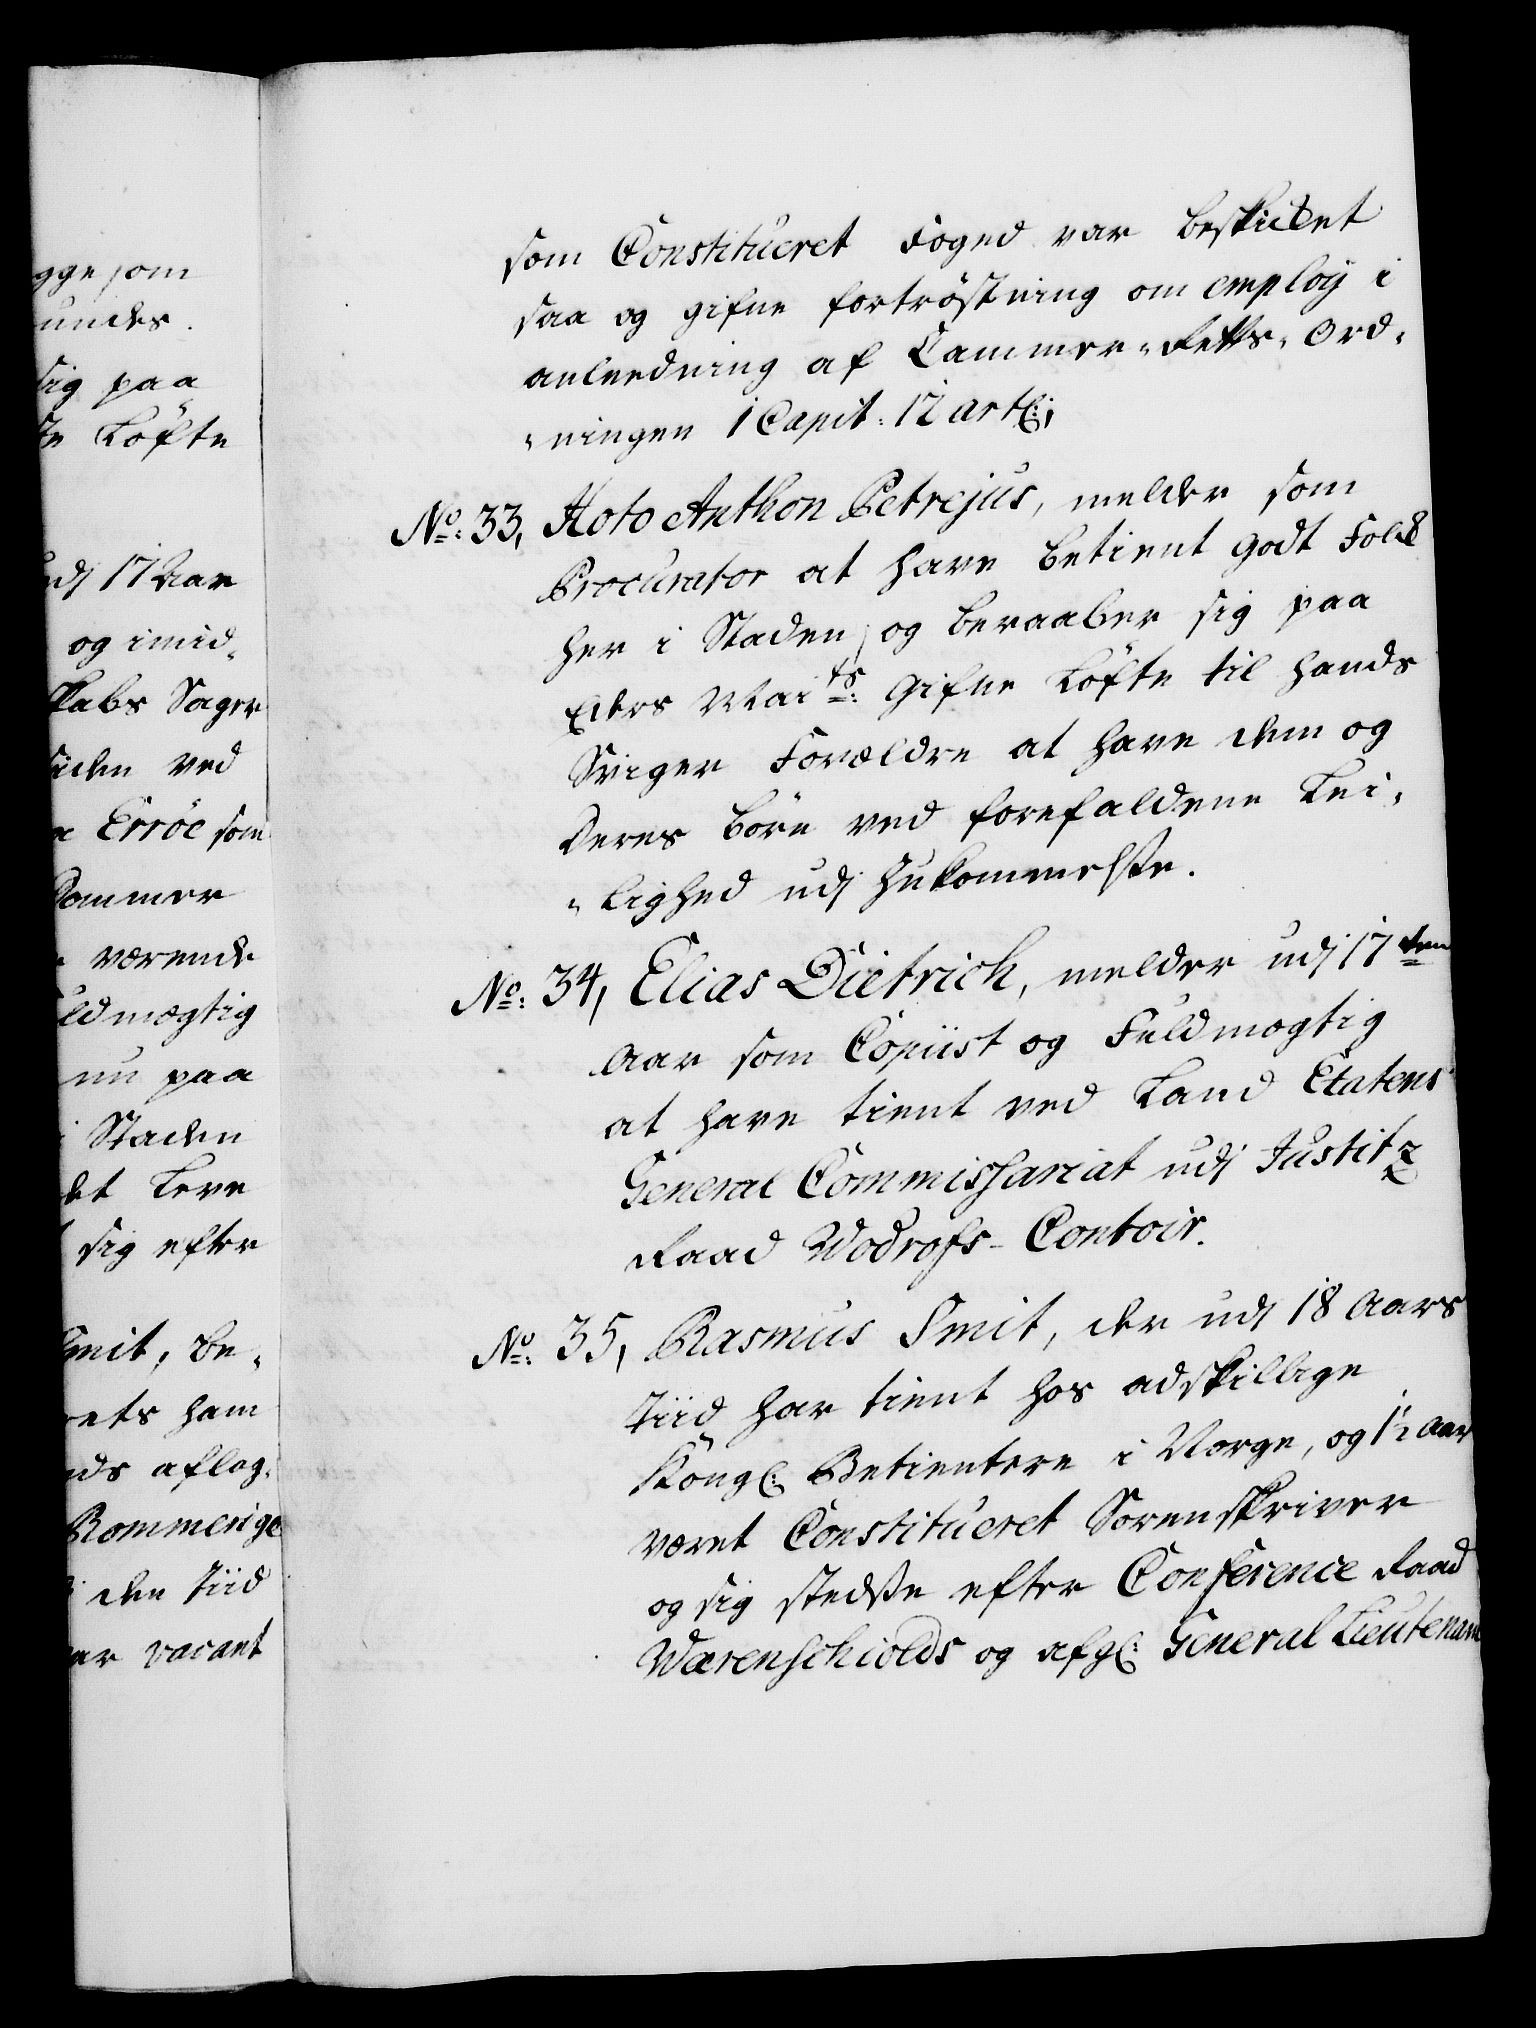 gge som
undes.
sig paa
te Løfte
udj 17 Aar
og imid„
skabs Sager
siden ved
Errøe som
Cammer
værende
uldmægtig
nu paa
i Staden
det Leve
sig efter
Smit, be„
rets ham
nds aflag„
Rommerige
den Tiid
var vacant
som Constitueret Foged var beskicket
saa og gifne fortröstning om employ i
anledning af Cammer„Retts„Ord„
„ningen 1 Capit: 12 artl:,
No: 33, Hoto Anthon Petrejus, melder som
Procurator at have betient godt Folck
her i Staden, og beraaber sig paa
Eders Mai:ts gifne Löfte til hands
Sviger Forældre at have dem og
Deres börn ved forefaldene Lei„
„lighed udj Hukommelste.
No: 34, Elias Dietrich, melder udj 17ten
Aar som Copiist og Fuldmægtig
at have tient ved Land Etatens
General Commissariat udj Justitz
Raad Wodrofs- Contoir.
No: 35, Rasmus Smit, der udj 18 Aars
Tiid har tient hos adskillige
Kongl: Betientere i Norge, og 1½ Aar
været Constitueret Sorenskriver
og sig stedsse efter Conference Raad
Wærenschiolds og afgl: General Lieutenant